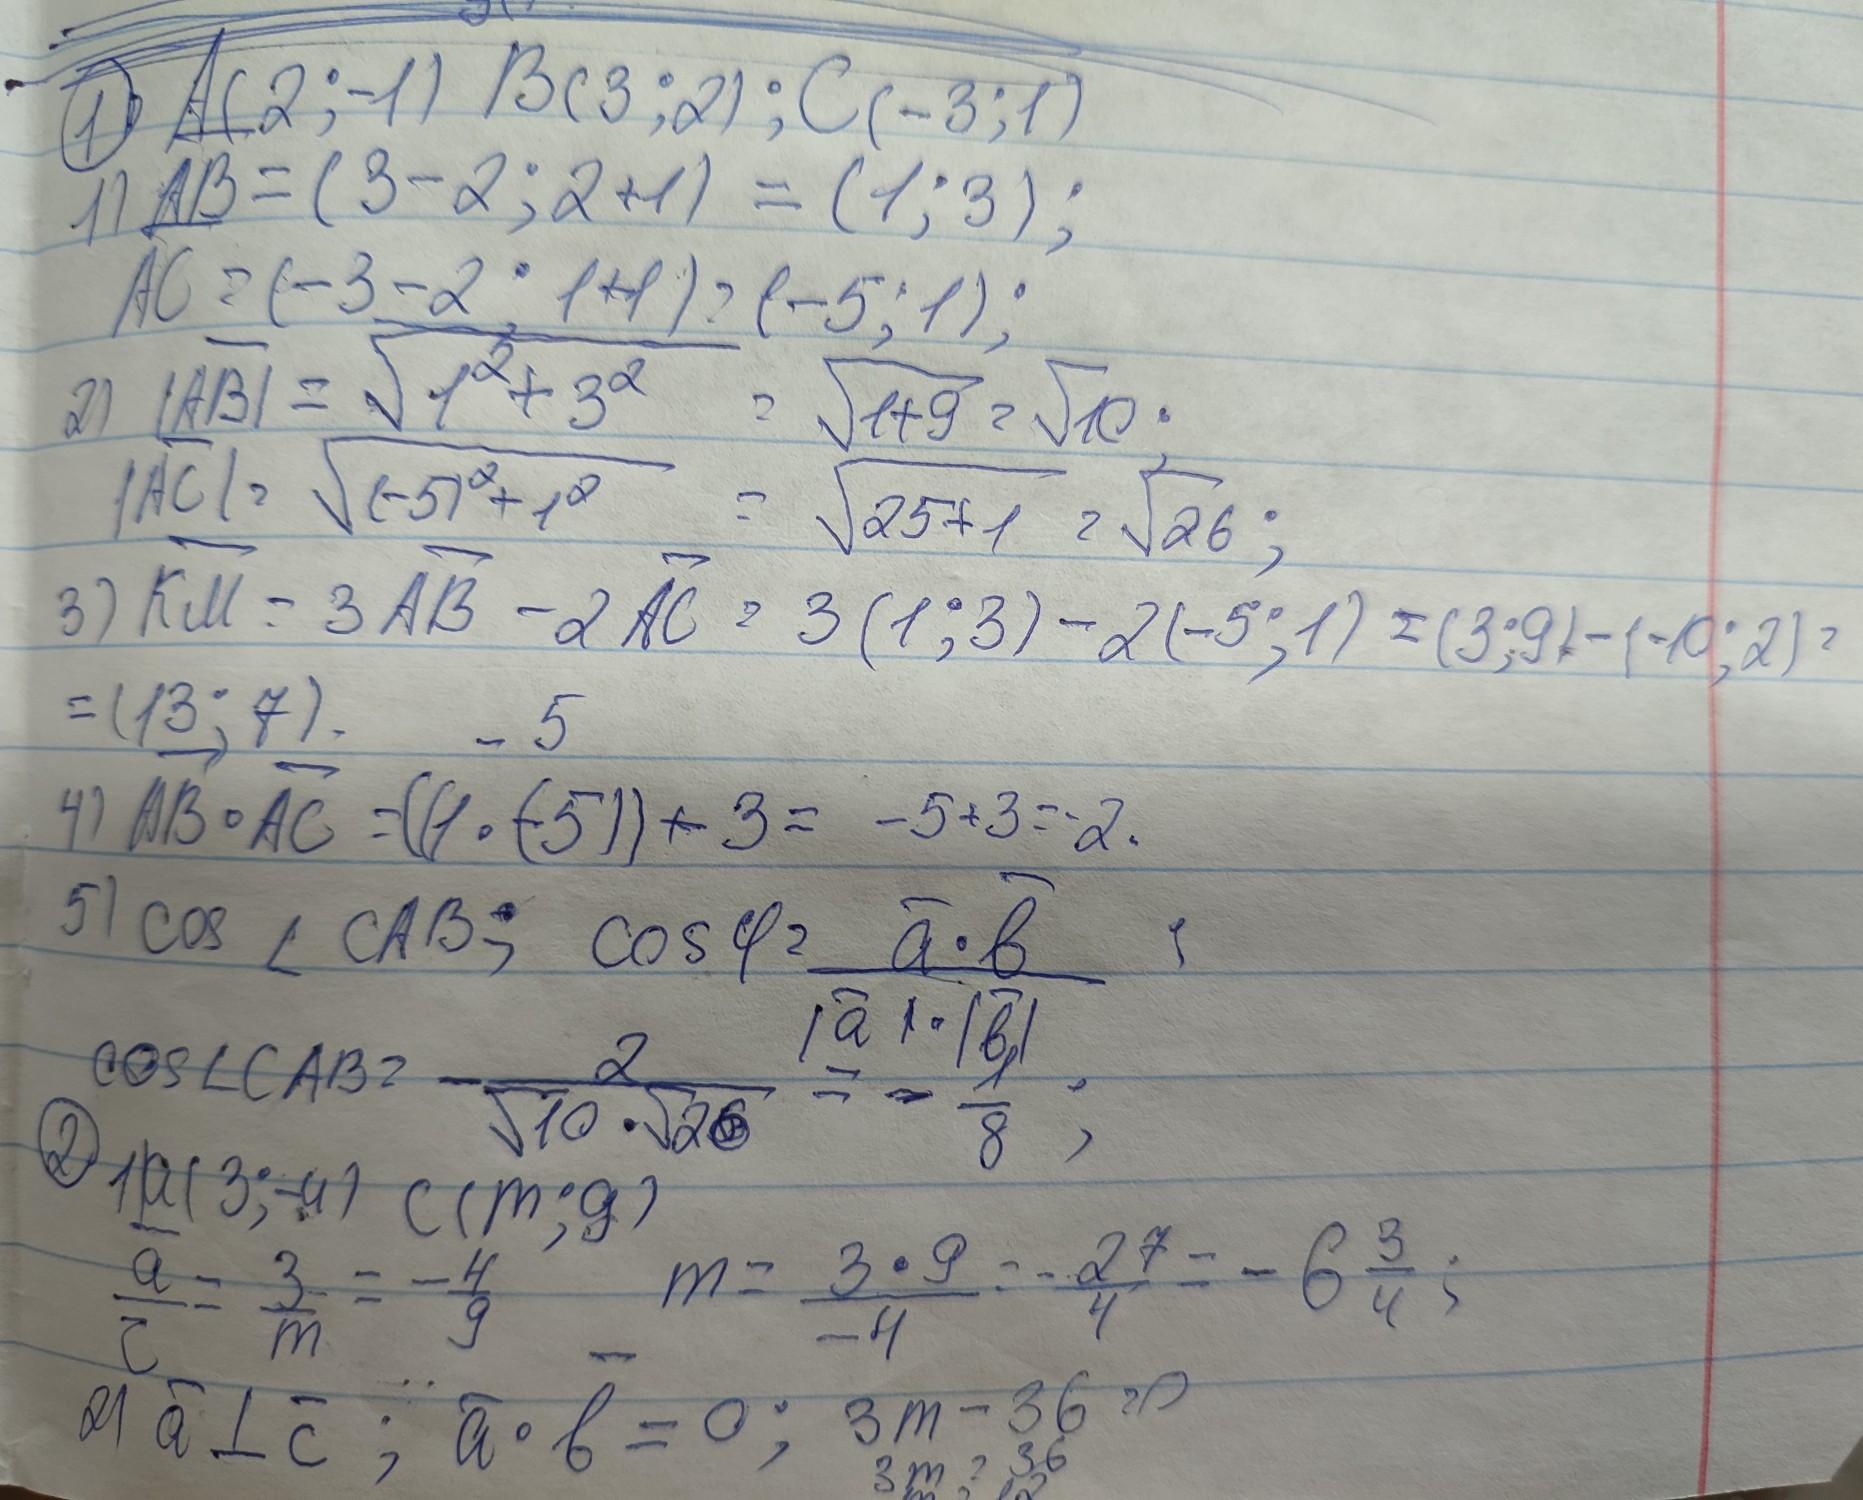 1) A(2;-1) B(3;2); C(-3;1)
1) AB = (3-2; 2+1) = (1;3);
AC = (-3-2; 1+1) = (-5;1);
2) |AB| = √1²+3² = √1+9 = √10;
|AC| = √(-5)²+1² = √25+1 = √26;
3) KM = 3AB - 2AC = 3(1;3) - 2(-5;1) = (3;9) - (-10;2) =
= (13;7). - 5
4) AB · AC = ((1·(-5)) + 3 = -5+3 = -2.
5) cos ∠ CAB; cos φ = a·b / |a|·|b| ;
cos∠CAB = - 2 / √10·√26 = - 1/8 ;
2) 1) a(3;-4) c(m;9)
a/c = 3/m = -4/9 m = 3·9/-4 = -27/4 = -6 3/4 ;
2) a ⊥ c ; a · b = 0; 3m - 36 = 0
3m = 36
m = 12